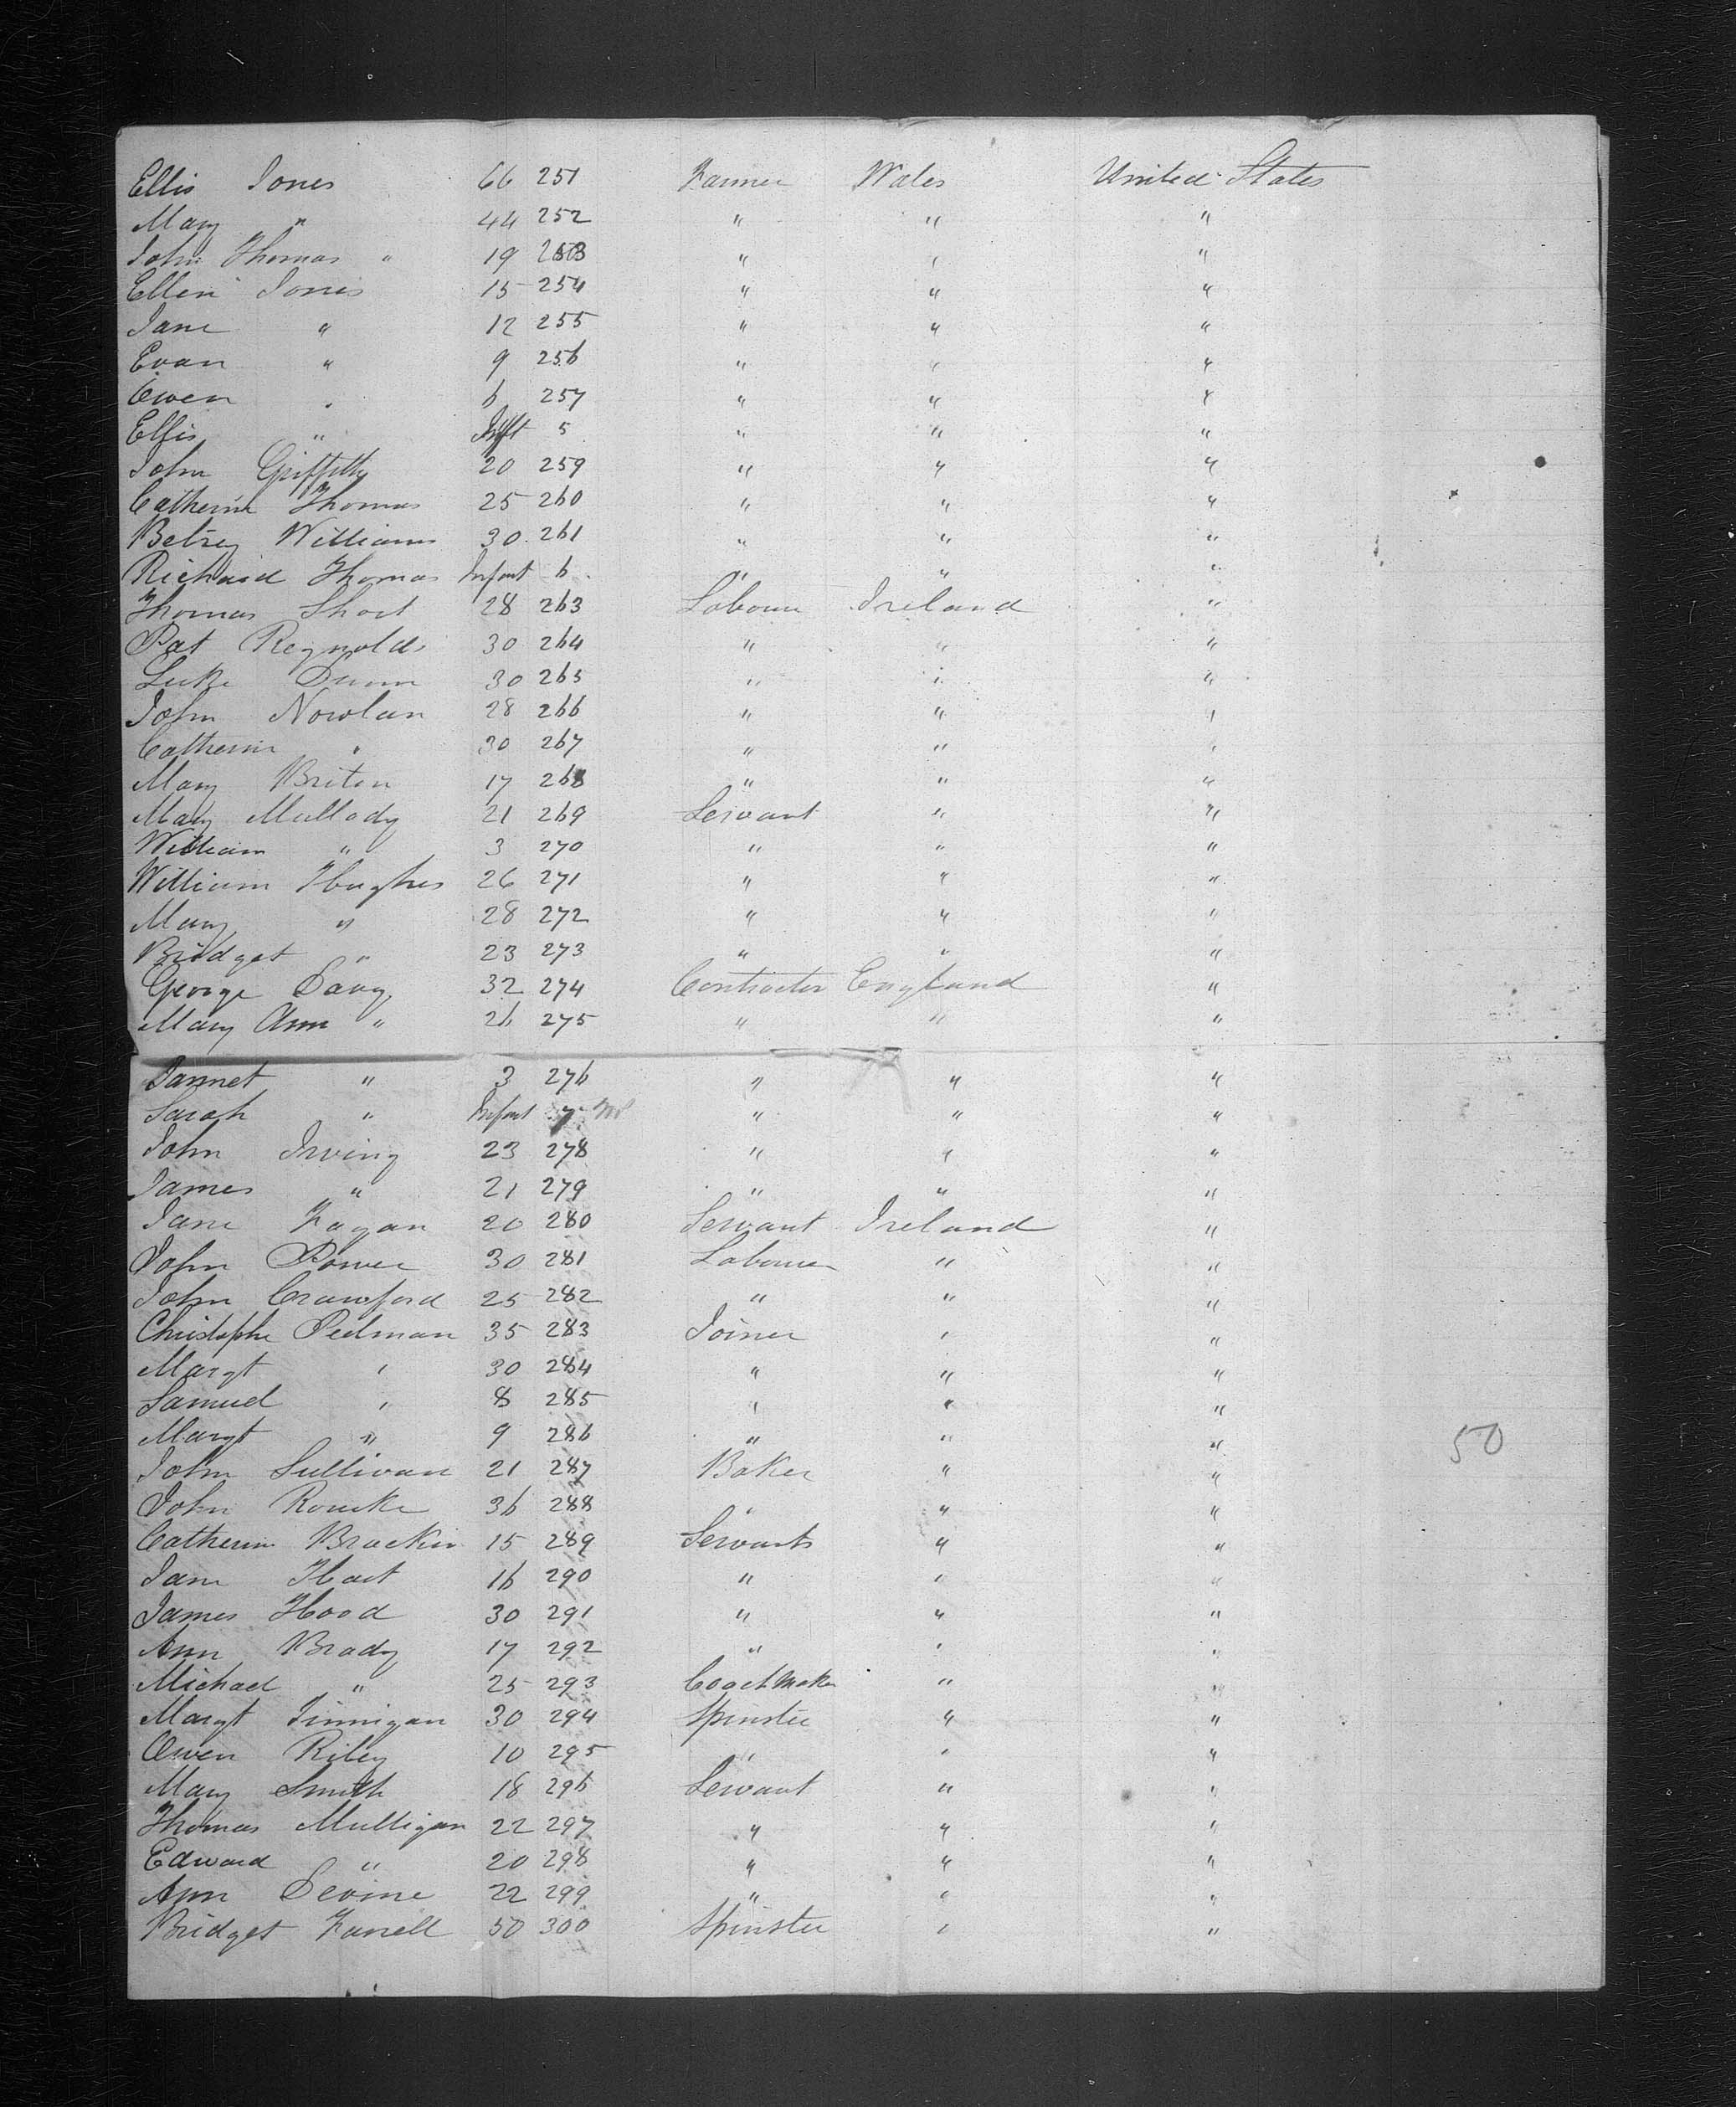 Ellis Jones 66 251 Farmer Wales United States
Mary " 44 252 " " "
John Thomas " 19 253 " " "
Ellen Jones 15 254 " " "
Jane " 12 255 " " "
Evan " 9 256 " " "
Owen " 6 257 " " "
Ellis " Inft " " "
John Griffith 20 259 " " "
Catherine Thomas 25 260 " " "
Betsey Williams 30 261 " " "
Richard Thomas Infant 6 " " "
Thomas Short 28 263 Labourer Ireland "
Pat Reynolds 30 264 " " "
Luke Dunn 30 265 " " "
John Nowlan 28 266 " " "
Catherine " 30 267 " " "
Mary Briton 17 268 " " "
Mary Mullady 21 269 Servant " "
William " 3 270 " " "
William Hughes 26 271 " " "
Mary " 28 272 " " "
Bridget " 23 273 " " "
George Davy 32 274 Contractor England "
Mary Ann " 26 275 " " "
Jannet " 3 276 " " "
Sarah " Infant 7 " " "
John Irving 23 278 " " "
James " 21 279 " " "
Jane Fagan 20 280 Servant Ireland "
John Power 30 281 Labourer " "
John Crawford 25 282 " " "
Christophe Pedman 35 283 Joiner " "
Margt " 30 284 " " "
Samuel " 8 285 " " "
Margt " 9 286 " " "
50
John Sullivan 21 287 Baker " "
John Rourke 36 288 " " "
Catherine Brackin 15 289 Servants " "
Jane Hart 16 290 " " "
James Hood 30 291 " " "
Ann Brady 17 292 " " "
Michael " 25 293 Coach Maker " "
Margt Finnigan 30 294 Spinster " "
Owen Riley 10 295 " " "
Mary Smith 18 296 Servant " "
Thomas Mulligan 22 297 " " "
Edward " 20 298 " " "
Ann Devine 22 299 " " "
Bridget Farrell 50 300 Spinster " "